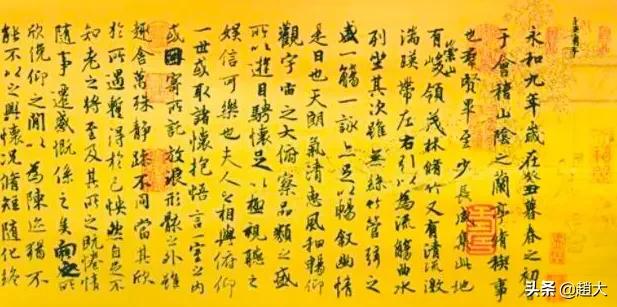 永和九年歲在癸丑暮春之初
于會稽山陰之蘭亭脩稧事
也羣賢畢至少長咸集此地
有崇山峻領茂林脩竹又有清流激
湍暎帶左右引以為流觴曲水
列坐其次雖無絲竹管弦之
盛一觴一詠亦足以暢叙幽情
是日也天朗氣清惠風和暢仰
觀宇宙之大俯察品類之盛
所以遊目騁懷足以極視聽之
娛信可樂也夫人之相與俯仰
一世或取諸懷抱悟言一室之內
或因寄所託放浪形骸之外雖
趣舍萬殊靜躁不同當其欣
於所遇暫得於己怏然自足不
知老之將至及其所之既惓情
隨事遷感慨係之矣向之所
欣俛仰之閒以為陳迹猶不
能不以之興懷況脩短隨化終
头条 @趙大